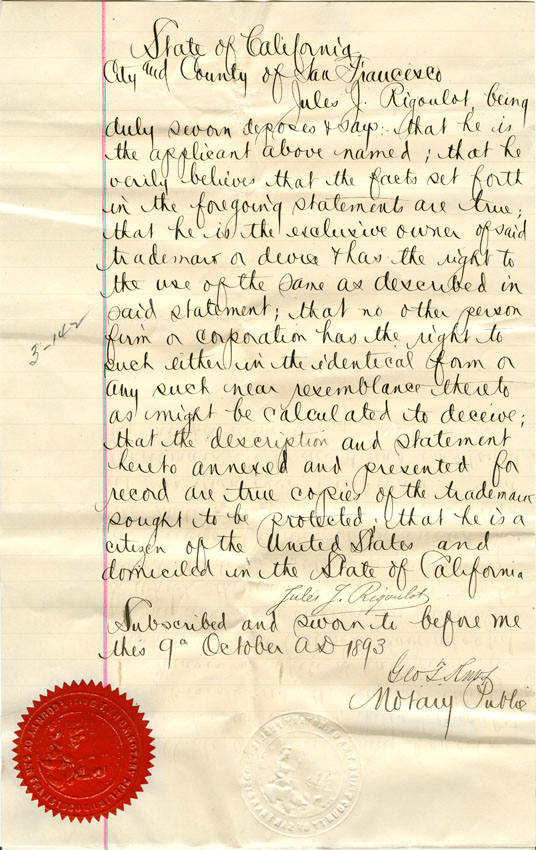 State of California
City and County of San Francesco
Jules J. Rigoulot, being
duly sworn deposes & says: that he is
the applicant above named; that he
verily believes that the facts set forth
in the foregoing statements are true;
that he is the exclusive owner of said
trademark or device & has the right to
the use of the same as described in
said statement; that no other person
firm or corporation has the right to
such either in the identical form or
any such near resemblance thereto
as might be calculated to deceive;
that the description and statement
hereto annexed and presented for
record are true copies of the trademark
sought to be protected; that he is a
citizen of the United States and
domiciled in the State of California
Jules J. Rigoulot
Subscribed and sworn to before me
this 9th October AD 1893
Geo T. Knox
Notary Public
3-142